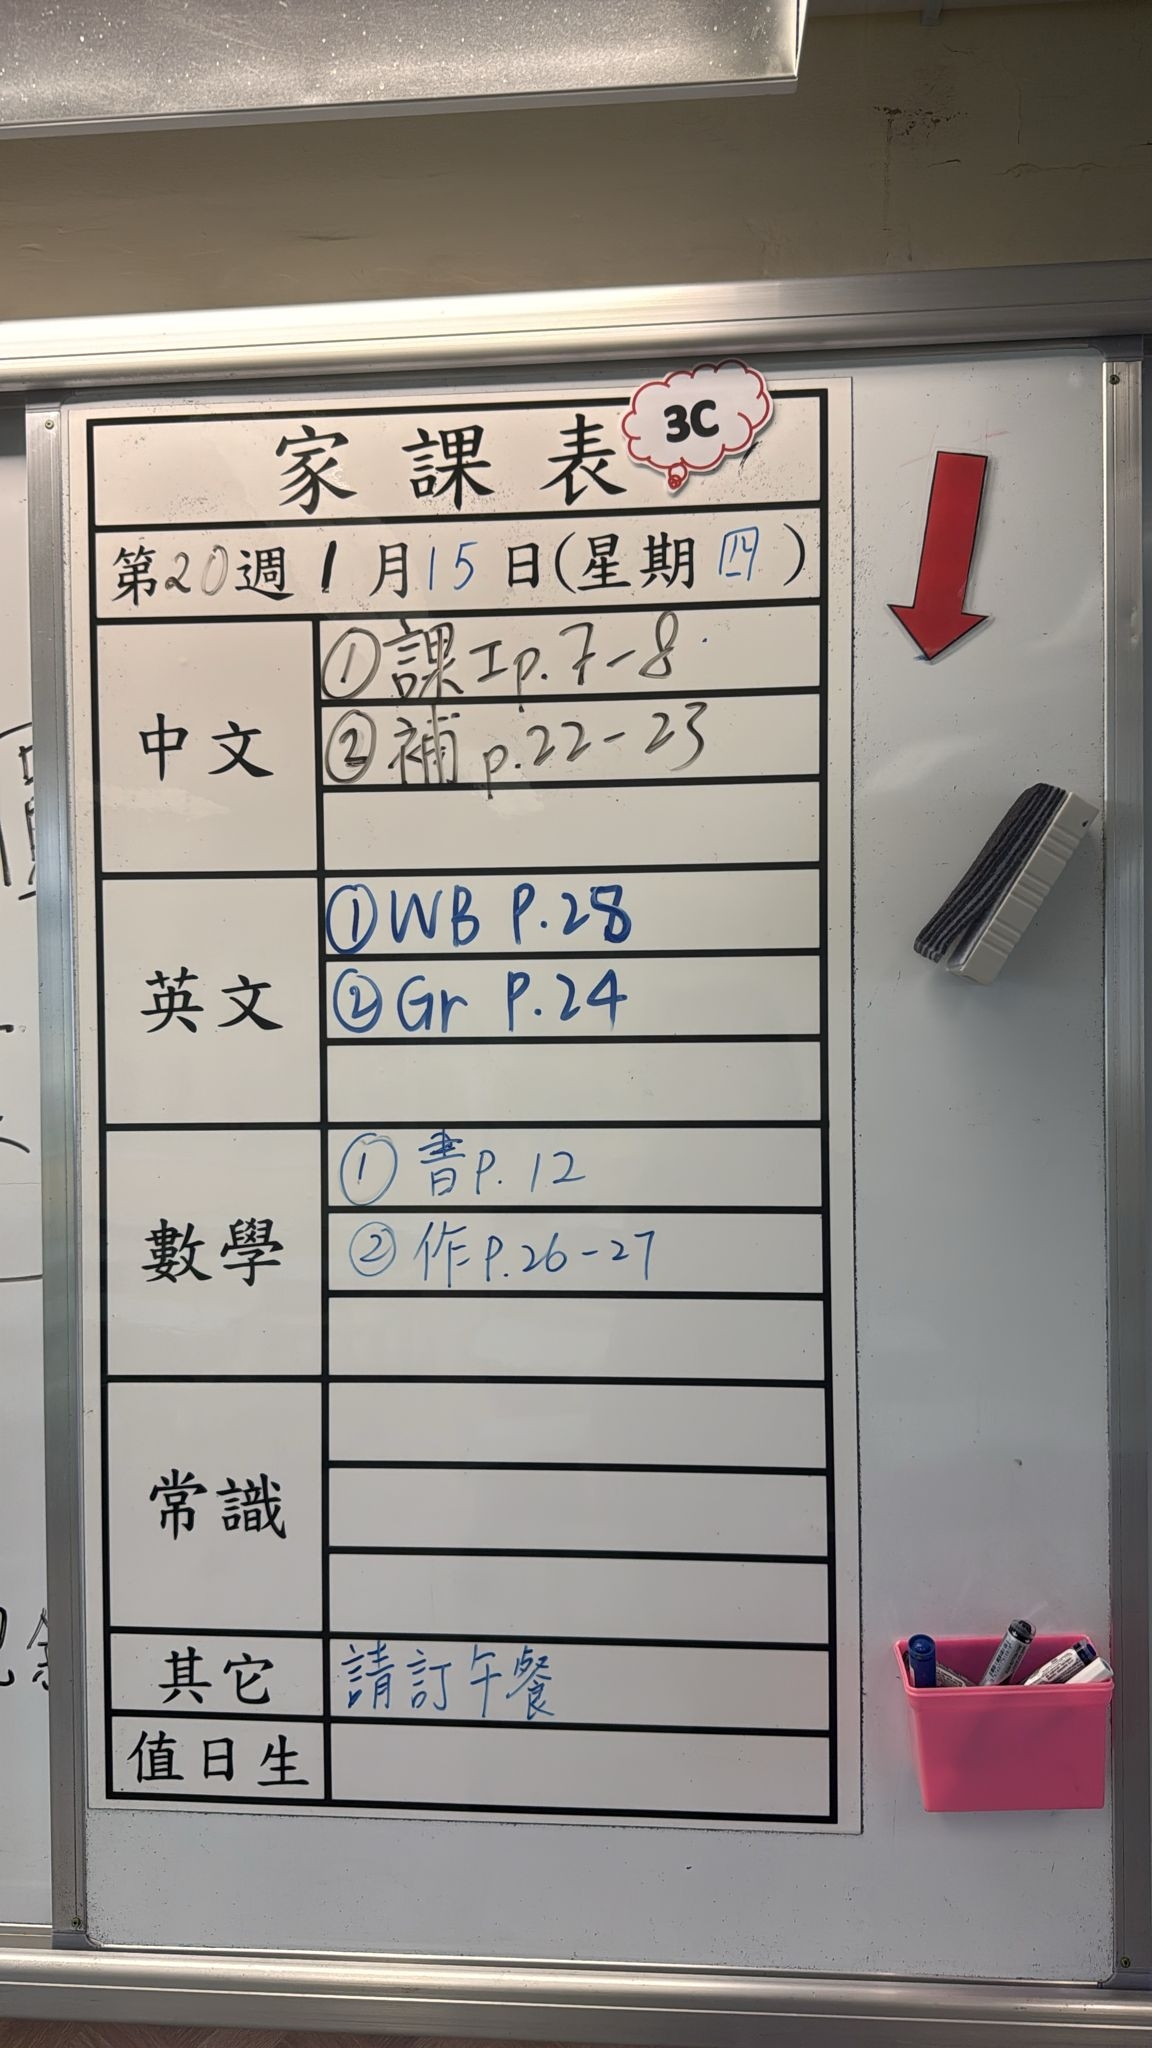 3C
家課表
第20週 1月15日(星期四)
中文
①課工p.7-8
②補p.22-23
英文
①WB P.28
②Gr P.24
數學
①書P.12
②作P.26-27
常識
其它
請訂午餐
值日生